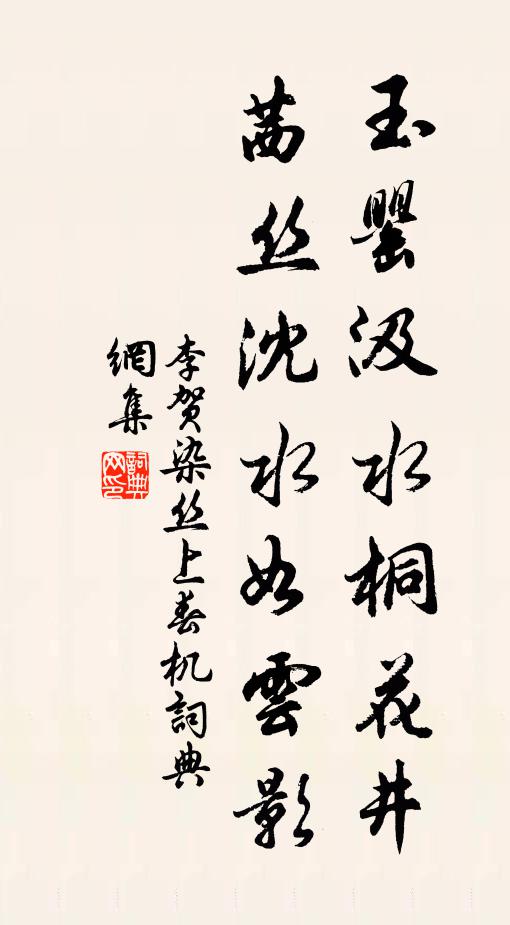 玉罂汲水桐花井
茜丝沈水如雲影
李贺染丝上春机詞典
網集
詞典
网印